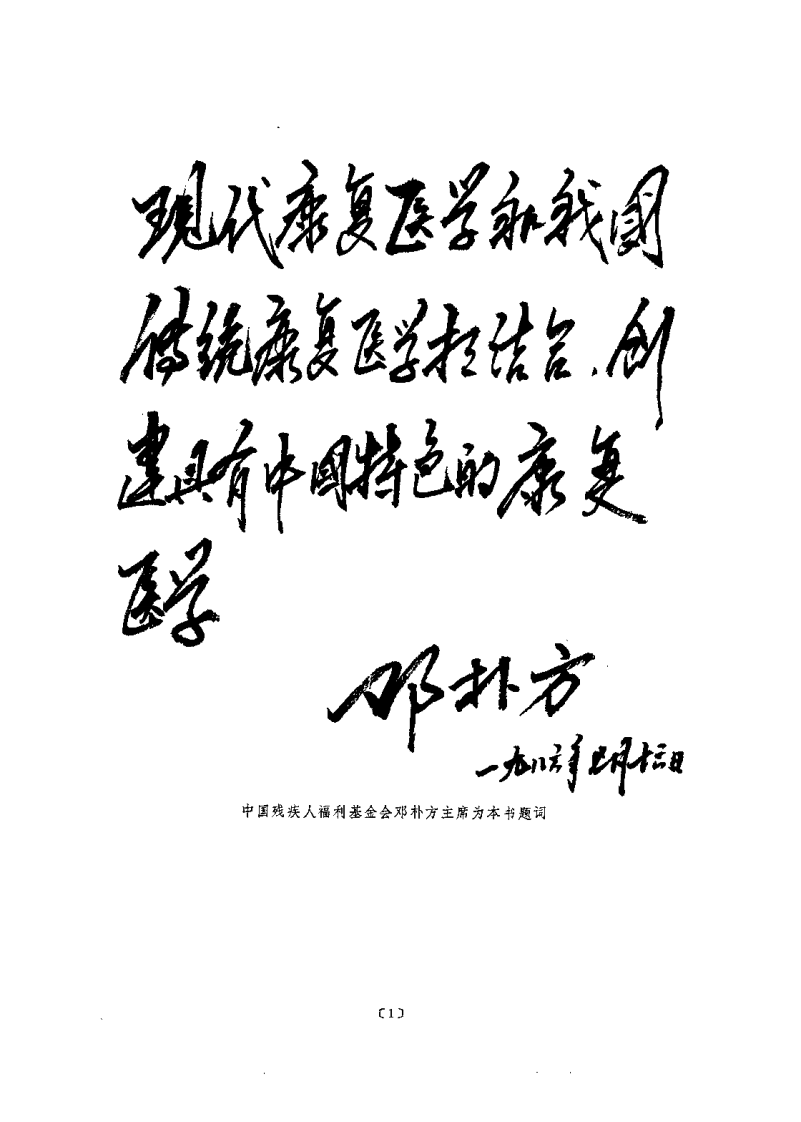 现代康复医学和我國
传统康复医学相结合、创
建具有中國特色的康复
医学
邓朴方
一九八六年七月十六日
中国残疾人福利基金会邓朴方主席为本书题词
〔1〕